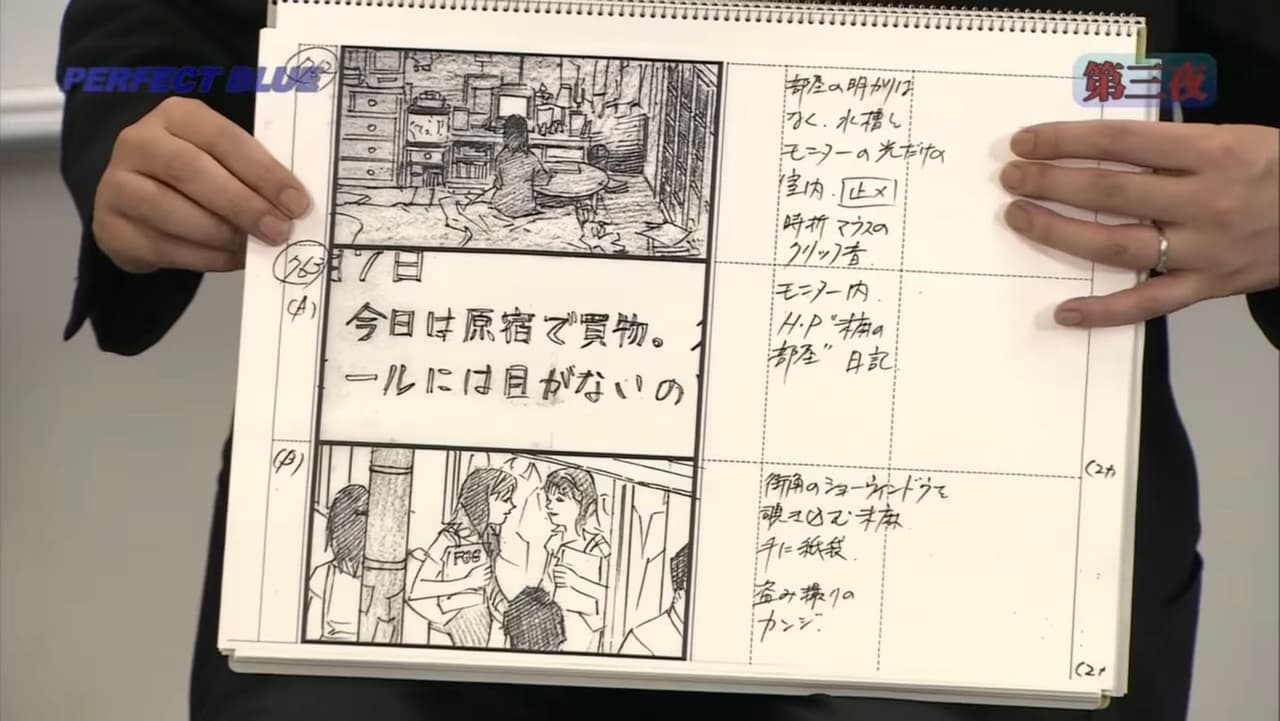 PERFECT BLUE
第三夜
部屋の明かりは
なく、水槽と
モニターの光だけの
室内. 止メ
時折マウスの
クリック音.
763
月7日
(A)
今日は原宿で買物。
ールには目がないの
モニター内.
H.P "未麻の
部屋" 日記.
(B)
FGG
街角のショーウィンドウを
覗き込む未麻
手に紙袋.
盗み撮りの
カンジ.